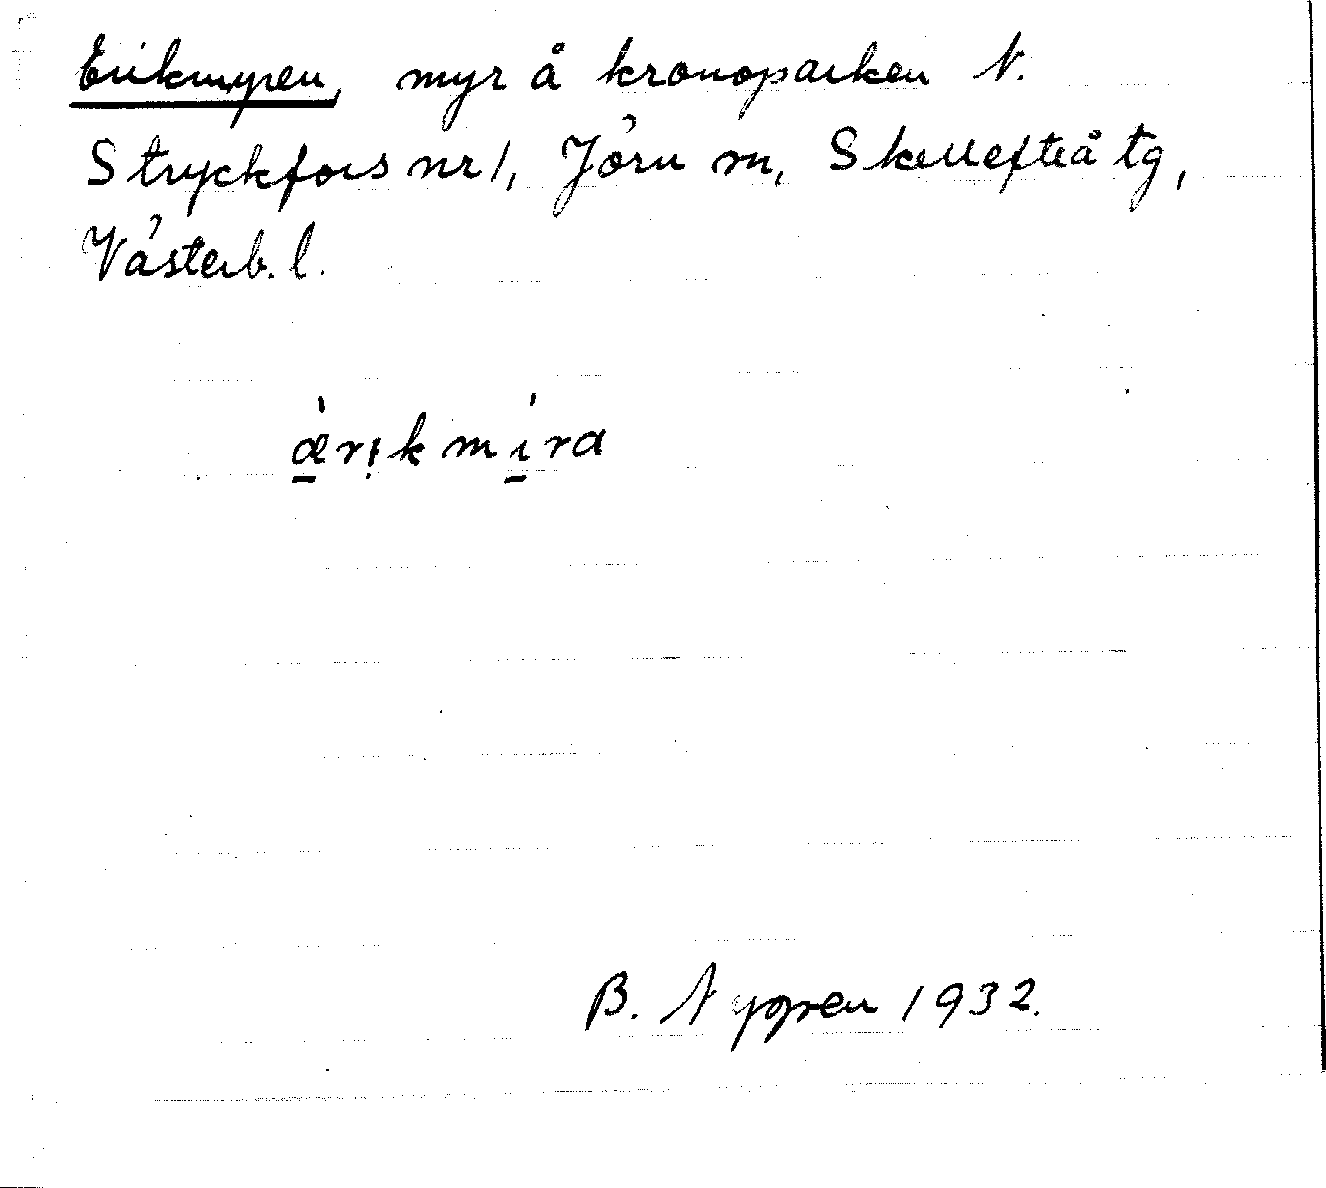 Erikmyren, myr å kronoparken N.
Stryckfors nr 1, Jörn sn, Skellefteå tg,
Västerb. l.
æ̲̀rịkmí̲ra
B. Nygren 1932.